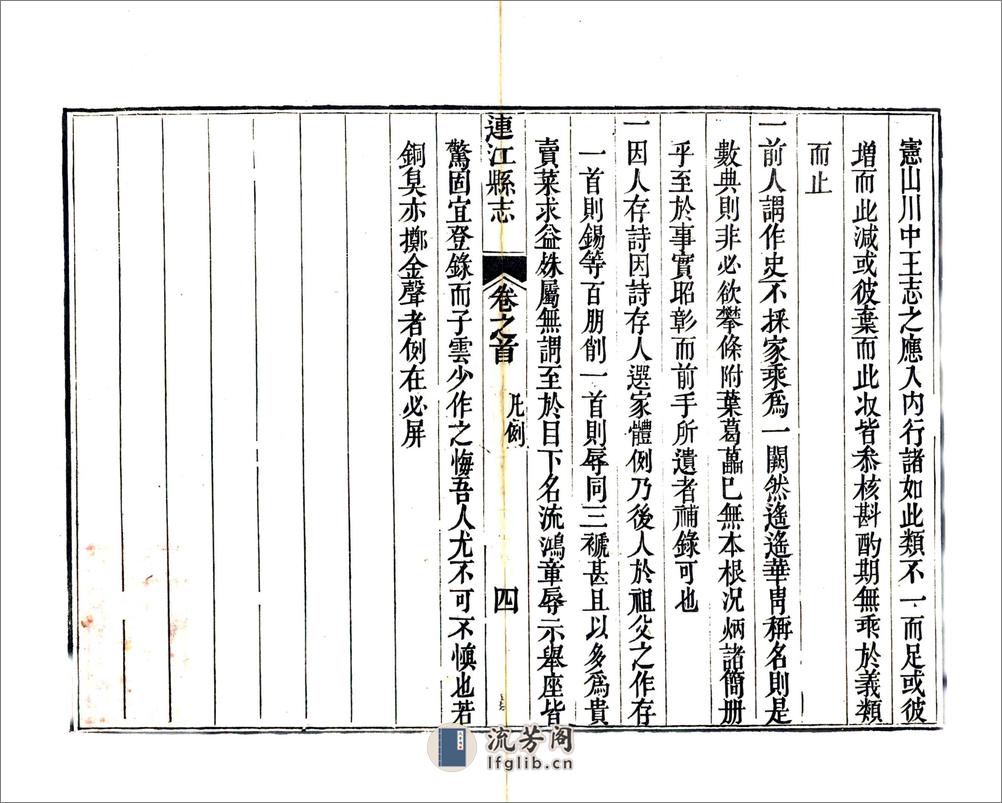 憲山川中王志之應入內行諸如此類不一而足或彼
增而此減或彼棄而此收皆叅核斟酌期無乖於義類
而止
一前人謂作史不採家乘爲一闕然遙遙華胄稱名則是
數典則非必欲攀條附葉葛藟已無本根况炳諸簡册
乎至於事實昭彰而前手所遺者補錄可也
一因人存詩因詩存人選家體例乃後人於祖父之作存
一首則錫等百朋削一首則辱同三褫甚且以多爲貴
賣菜求益姝屬無謂至於目下名流鴻章辱示舉座皆
連江縣志
卷之首
凡例
四
驚固宜登錄而子雲少作之悔吾人尤不可不愼也若
銅臭亦擲金聲者例在必屏
流芳阁
lfglib.cn